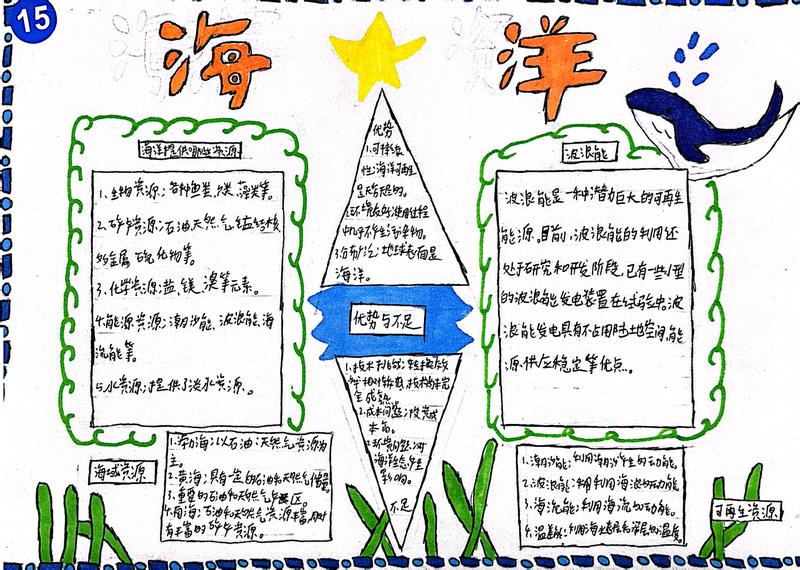 15
海洋
海洋提供哪些资源
1.生物资源:各种鱼类、藻类等。
2.矿产资源:石油天然气锰结核
多金属硫化物等。
3.化学资源:盐、镁、溴等元素。
4.能源资源:潮汐能、波浪能、海
流能等。
5.水资源:提供了淡水资源。
优势
1.可持续
性:海洋可再生
是无穷无尽的。
2.环境友好:使用过程
中几乎不产生污染物。
3.分布广泛:地球表面是
海洋。
优势与不足
1.技术挑战:
相对较难,技术尚未完
全成熟
2.成本问题:投资成
本高。
3.环境问题:对
海洋生态产生
影响。
不足
波浪能
波浪能是一种潜力巨大的可再生
能源。目前,波浪能的利用还
处于研究和开发阶段,已有一些小型
的波浪能发电装置在试验中。波
浪能发电具有不占用陆地空间,能
源供应稳定等优点。
海域资源
1.渤海:以石油、天然气资源为
主。
2.黄海:具有一定的石油和天然气储量。
3.重要的石油和天然气产区。
4.南海:石油和天然气资源丰富,同时
有丰富的矿产资源。
1.潮汐能:利用潮汐产生的动能。
2.波浪能:利用海浪的动能。
3.海流能:利用海流的动能。
4.温差能:利用海水表层和深层的温度。
可再生资源